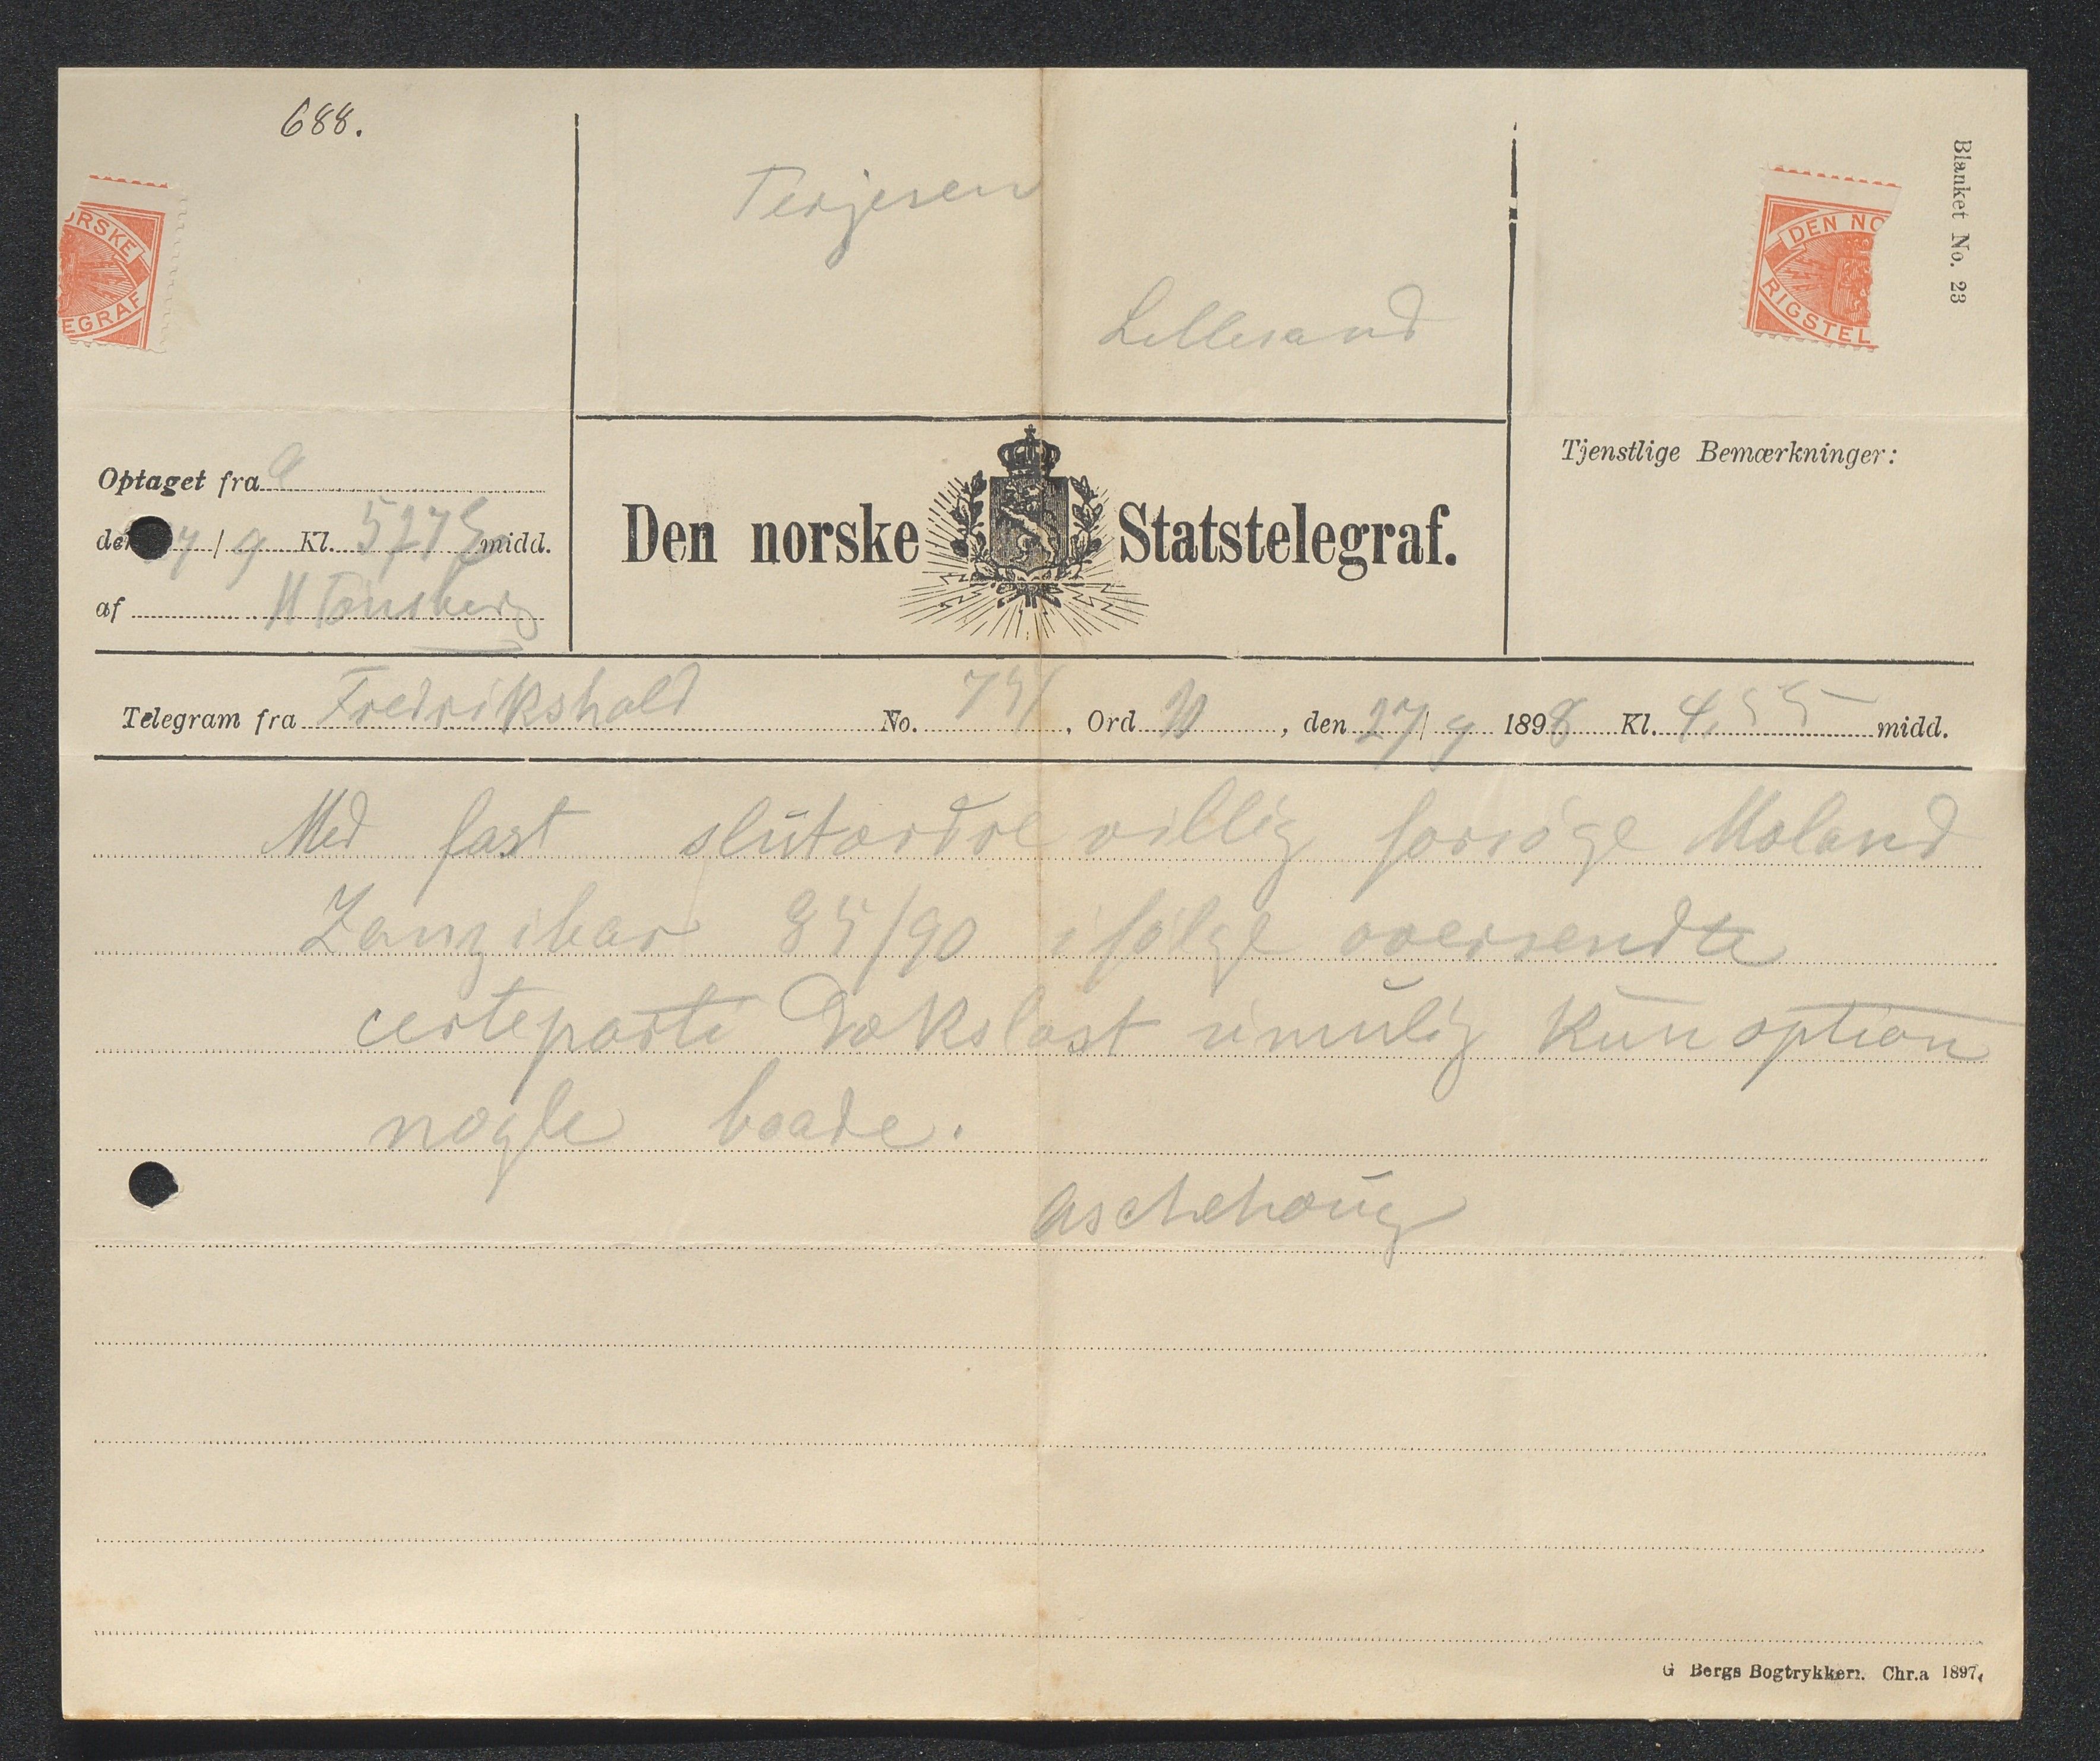 688.
Terjesen
Lillesand
Blanket No. 23
ORSKE
EGRAF
DEN NO
RIGSTEL
Optaget fra a
den 27/9 Kl. 5,27 E midd.
af H Tønsberg
Den norske Statstelegraf.
Tjenstlige Bemærkninger:
Telegram fra Fredrikshald No. , Ord , den 27/9 1898 Kl. 4.55 midd.
Med fast slutordre villig forsöge Moland
Zanzibar 85/90 ifölge oversendte
certeparti Dækslast umulig kun option
nogle baade.
Aschehoug
G Bergs Bogtrykkeri. Chr.a 1897.